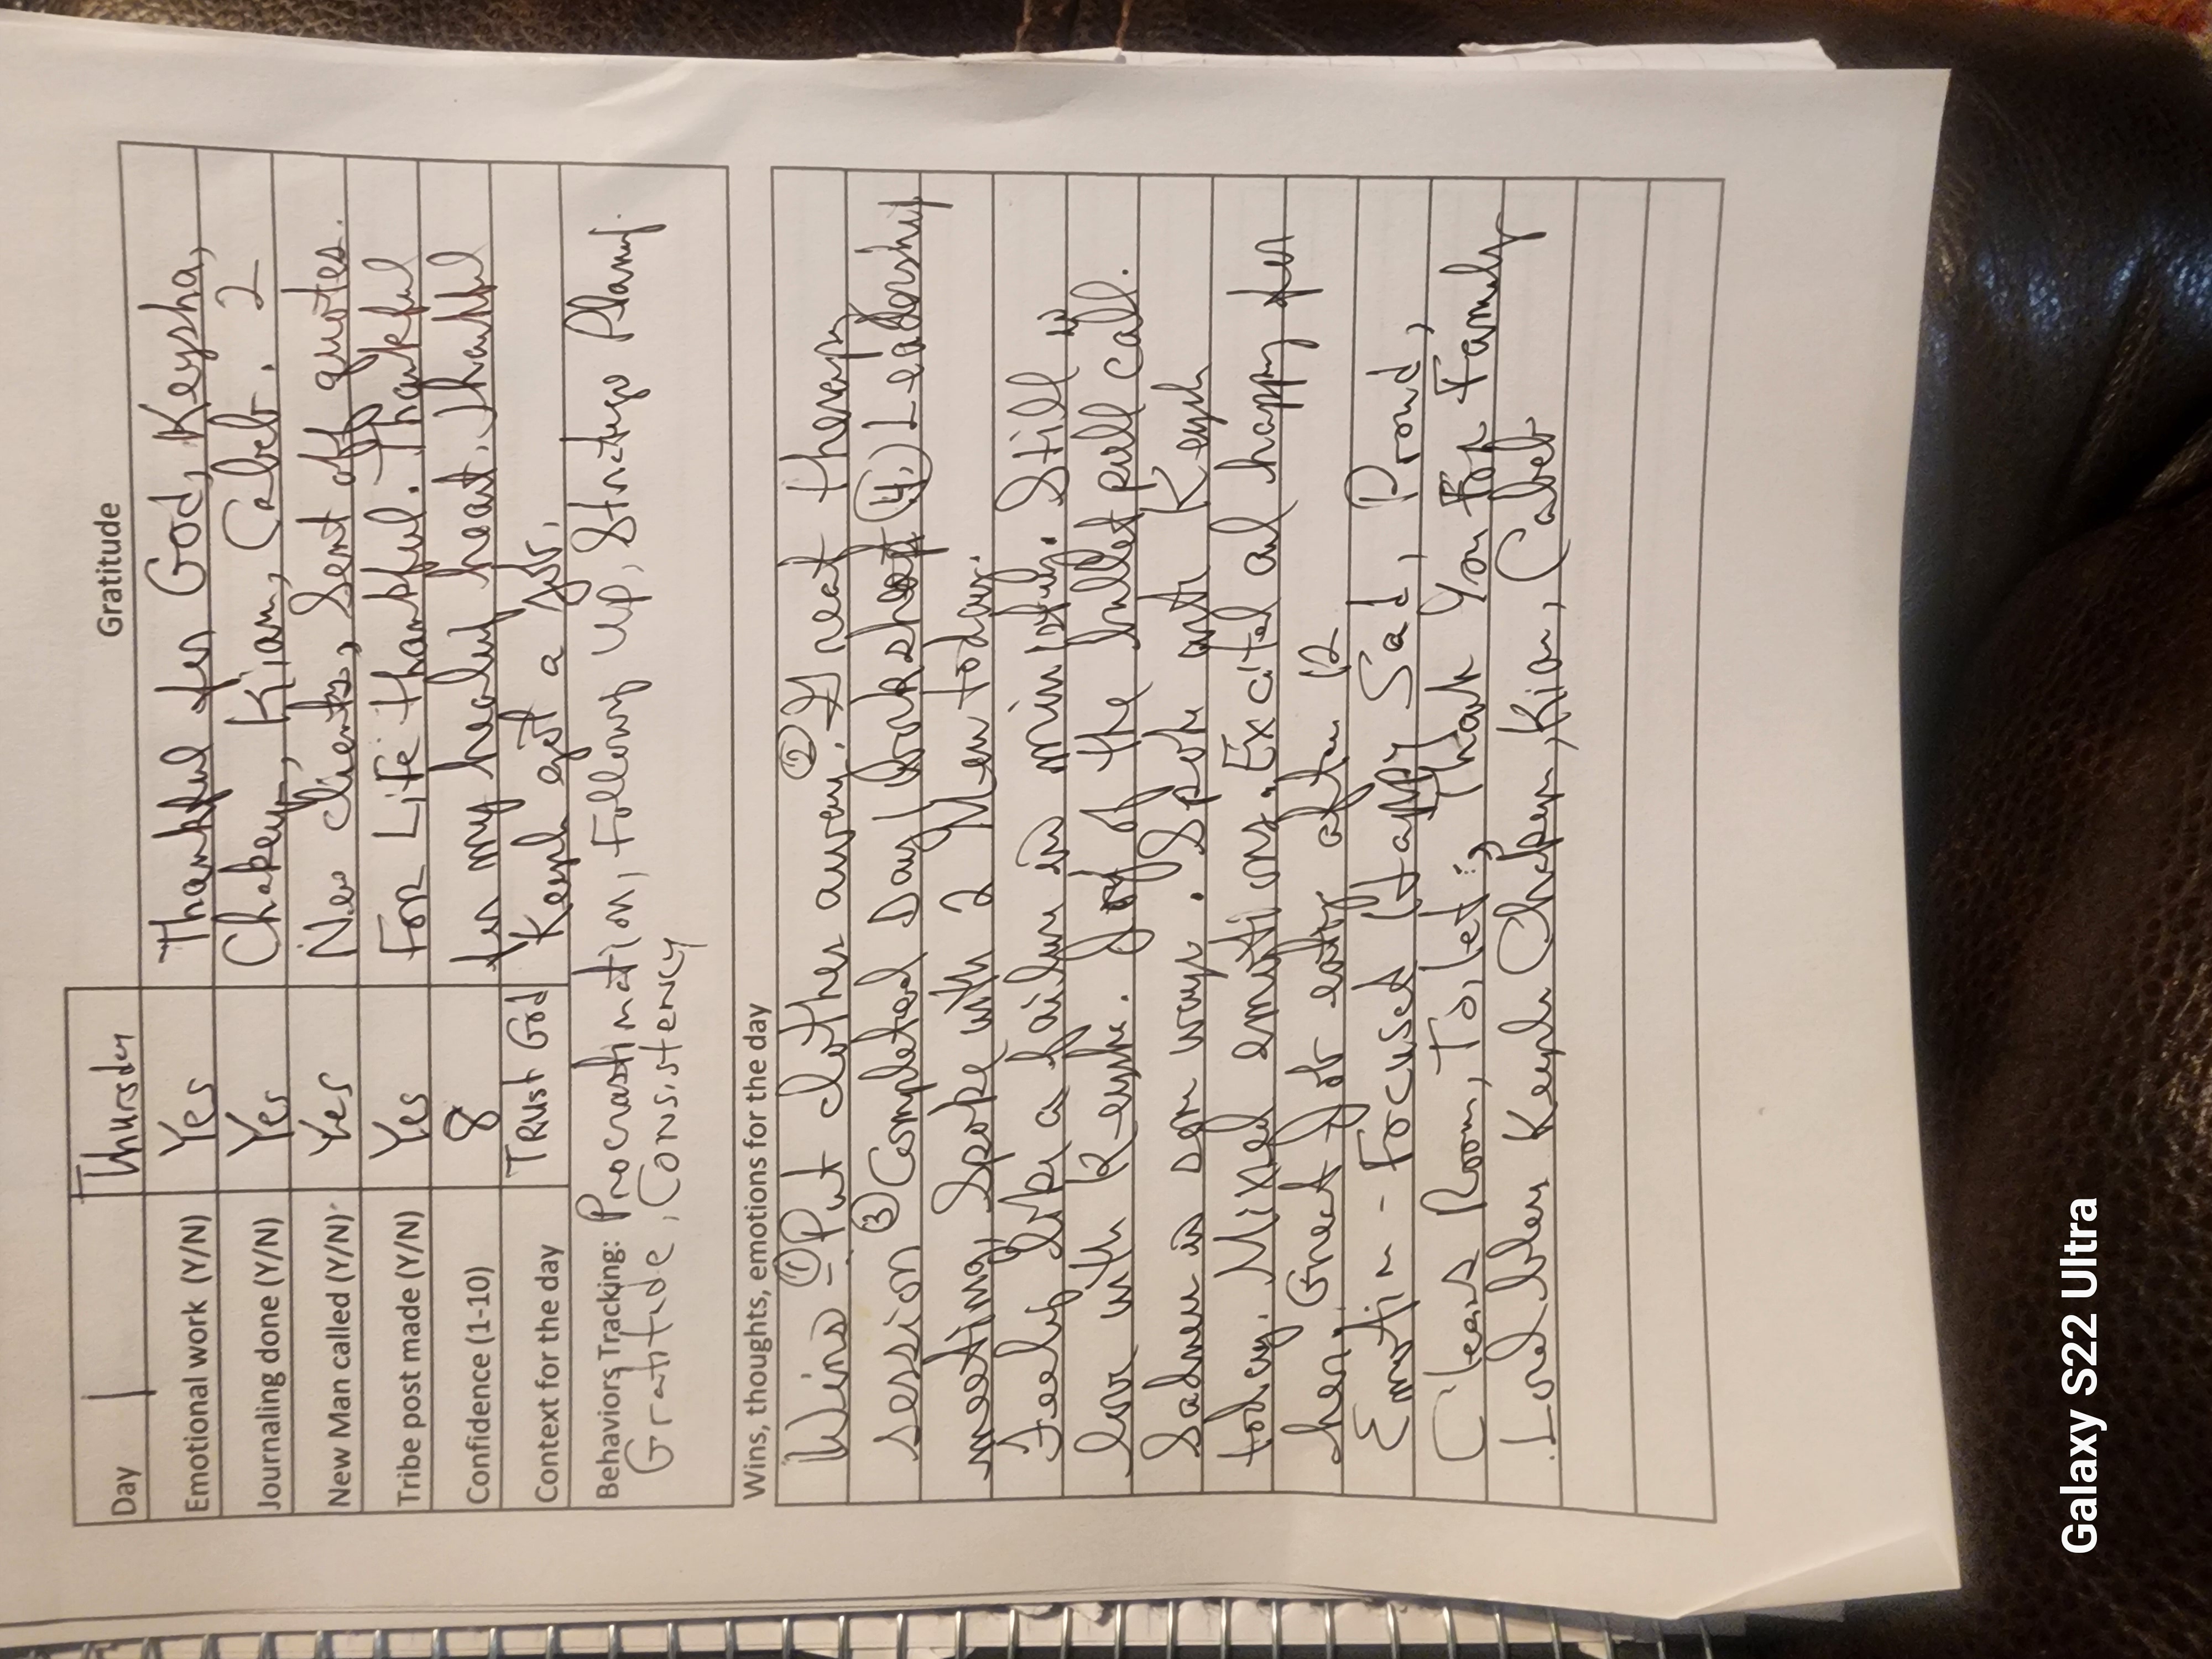 Gratitude
Day 1 Thursday
Emotional work (Y/N) Yes Thankful for God, Keysha,
Journaling done (Y/N) Yes Kian, Caleb. 2
New Man called (Y/N) Yes New clients, Sent off quotes.
Tribe post made (Y/N) Yes For Life thankful. Thankful
Confidence (1-10) 8 for my healing heart. thankful
Context for the day Trust God got a job.
Behaviors Tracking: Procrastination, Following up, Strategy Planning.
Gratitude, Consistency
Wins, thoughts, emotions for the day
Wins - ① Put clothes away. ② Great therapy
session ③ Completed Day 1 worksheet ④ Leadership
meeting, Spoke with 2 Men today.
Feeling like a failure in ministry. Still in
love with Keysha. Got off the bullet pull call.
Sadness in some ways. Spoke with
today. Mixed emotions. Excited and happy for
her. Great job eating after 12
Emotion - Focused Happy Sad, Proud,
Clean Room, Toilet, Thank You For Family
Lord bless Kian, Caleb
Galaxy S22 Ultra